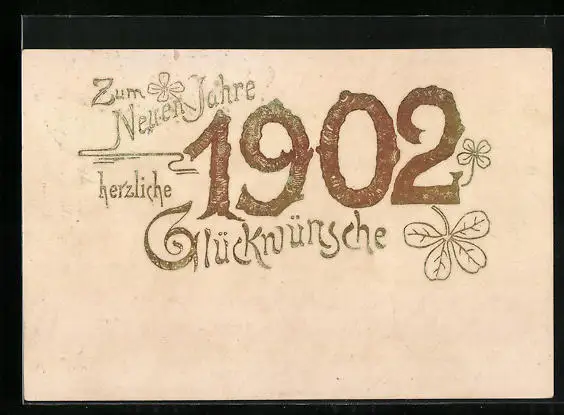 Zum
Neuen Jahre
1902
herzliche
Glückwünsche